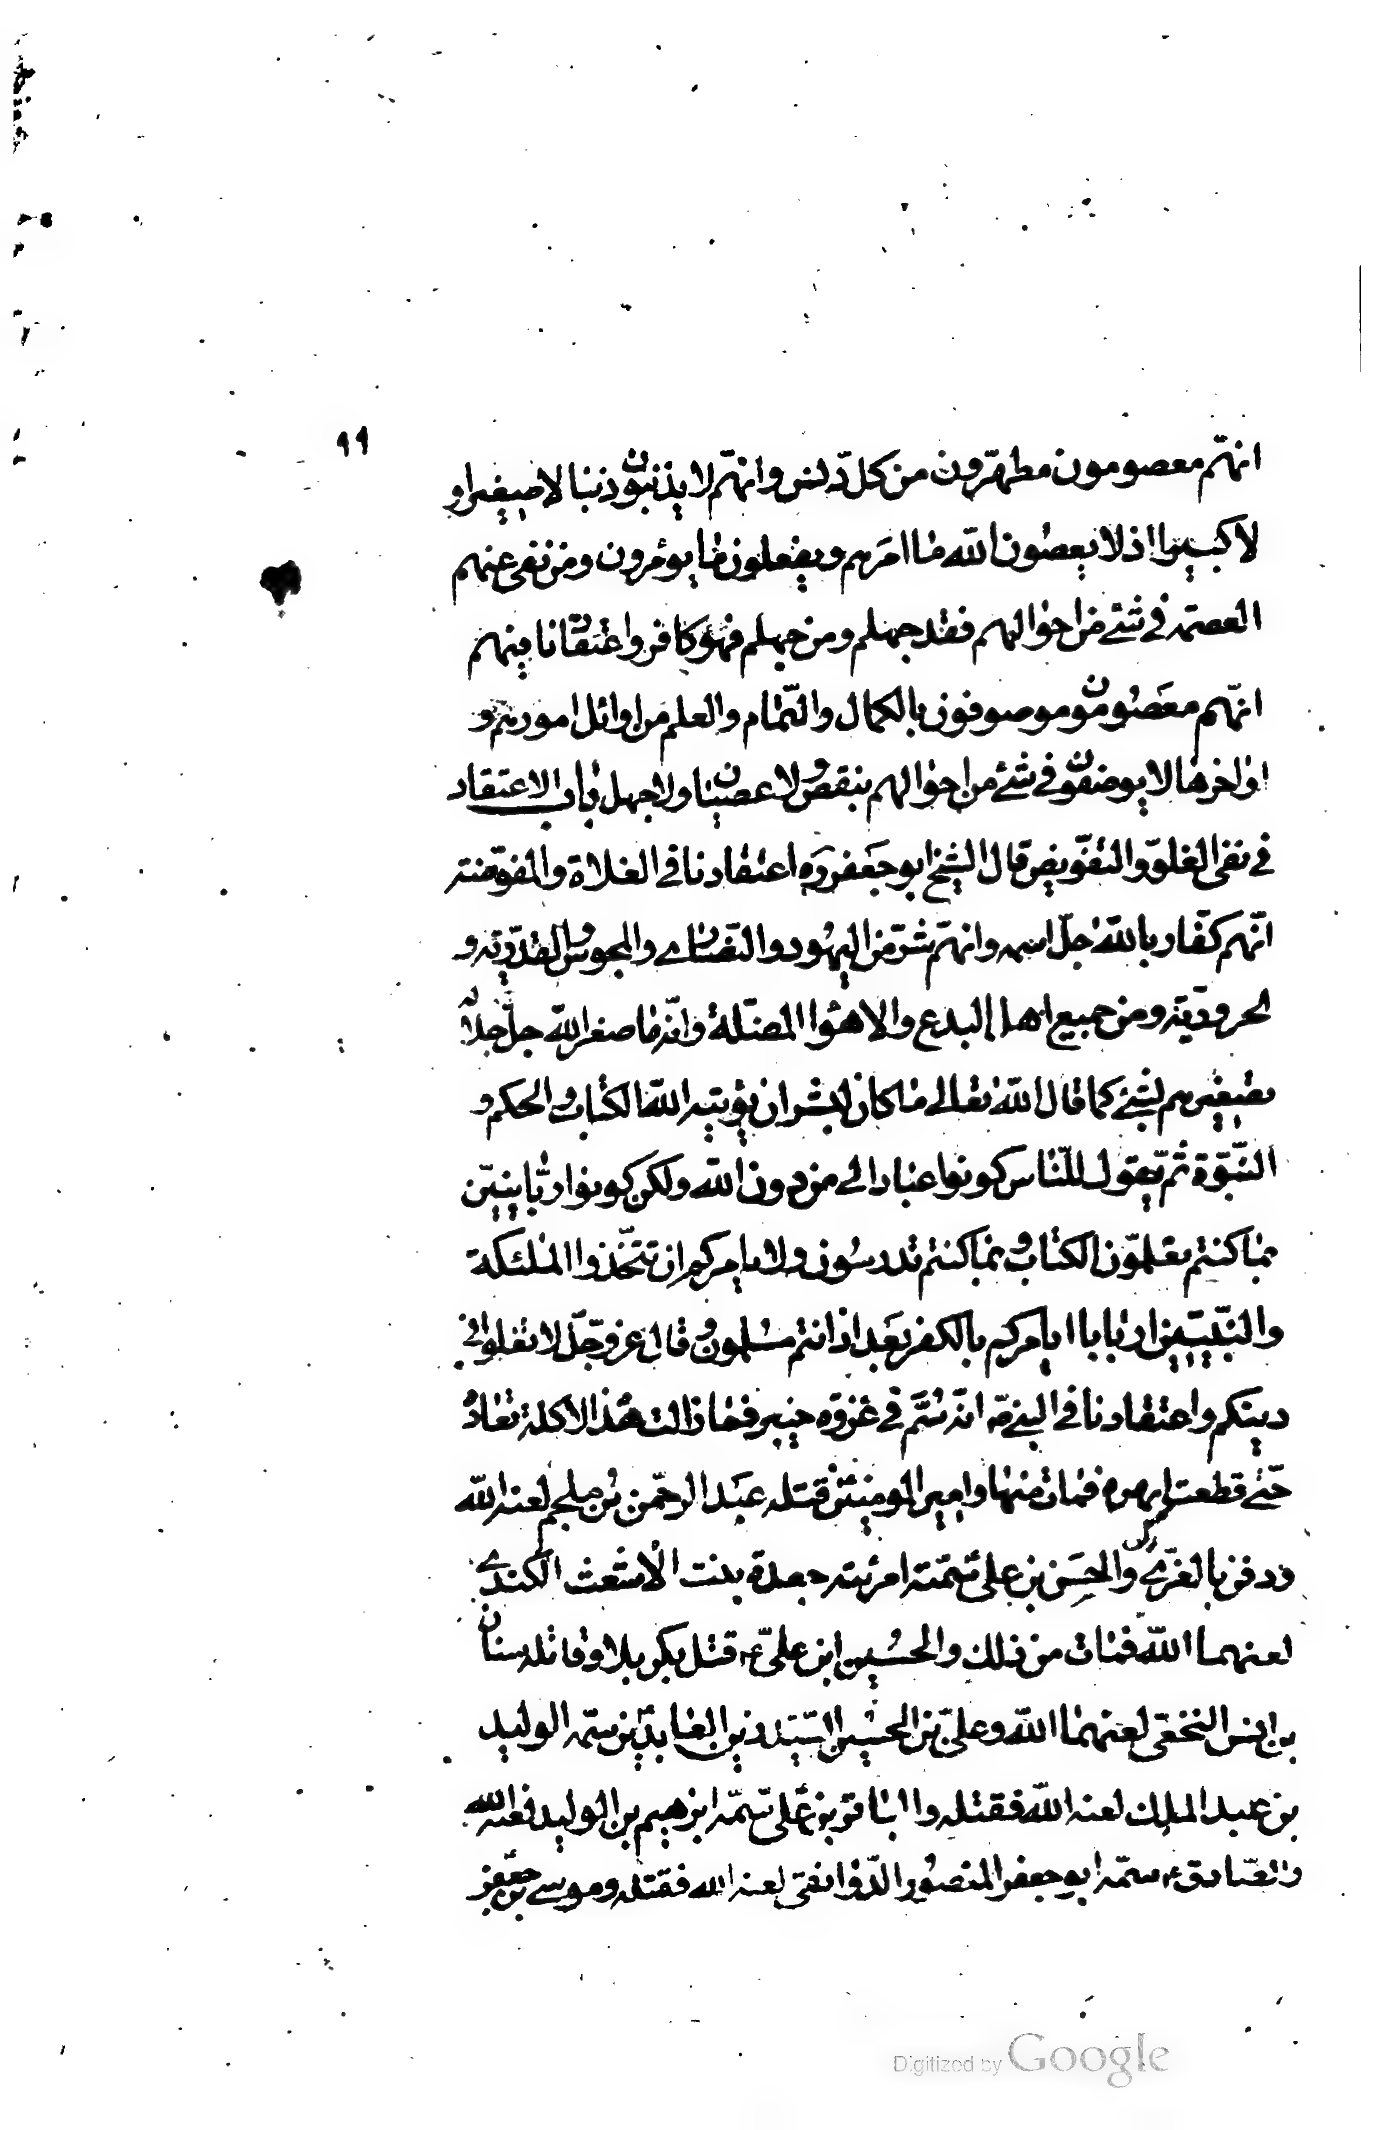 ٩٩
انهّم معصومون مطهرّون من كلّ دنس وانهّم لا يذنبون ذنبا لا صغيرا و
لا كبيرا اذ لا يعصون الله ما امرهم ويفعلون ما يومرون ومن نفى عنهم
العصمة في شئ من احوالهم فقد جهلم ومن جهلم فهو كافر واعتقادنا فيهم
انهّم معصومون موصوفون بالكمال والتّمام والعلم من اوائل امورهم و
اواخرها لا يوصفون في شئ من احوالهم بنقص ولا عصيان ولا جهل باب الاعتقاد
في نفى الغلوّ والتفّويض قال الشيخ ابو جعفر ره اعتقادنا في الغلاة والمفوّضة
انّهم كفّار بالله جلّ اسمه وانهّم شرّ من اليهود والنّصارى والمجوس والقدّريّة و
الحروريّة ومن جميع اهل البدع والاهوا المضلّة وانّه ما صغر الله جلّ جلاله
تصغيرهم لشئ كما قال الله تعالى ما كان لبشر ان يؤتيه الله الكتاب والحكم و
النّبوّة ثمّ يقول للنّاس كونوا عبادا لى من دون الله ولكن كونوا ربّانيّين
بما كنتم تعلمّون الكتاب وبما كنتم تدرسون ولا يامركم ان تتخّذوا الملئكة
والنبّيّين اربابا ايامركم بالكفر بعد اذ انتم مسلمون وقال عز وجّل لا تغلوا فى
دينكم واعتقادنا في النبي صه انه سُمّ في غزوه خيبر فما زالت هذه الاكلة تعاده
حتّى قطعت ابهره فمات منها وامير المومنين قتله عبد الرحمّن بن ملجم لعنه الله
ودفن بالغرّى والحسن بن علىّ سمّته امرئته جعدة بنت الاشعث الكندى
لعنهما الله فمات من ذلك والحسين ابن علىّ ع قتل بكربلا وقاتله سنان
بن انس النخعّى لعنهما الله وعلىّ بن الحسين السيّد زين العابدين سمّه الوليد
بن عبد الملك لعنه الله فقتله والباقر بن على سمّه ابرهيم بن الوليد لعنه الله
والصّادق ع سمّه ابو جعفر المنصور الدّوانقى لعنه الله فقتله وموسى بن جعفر
Digitized by Google